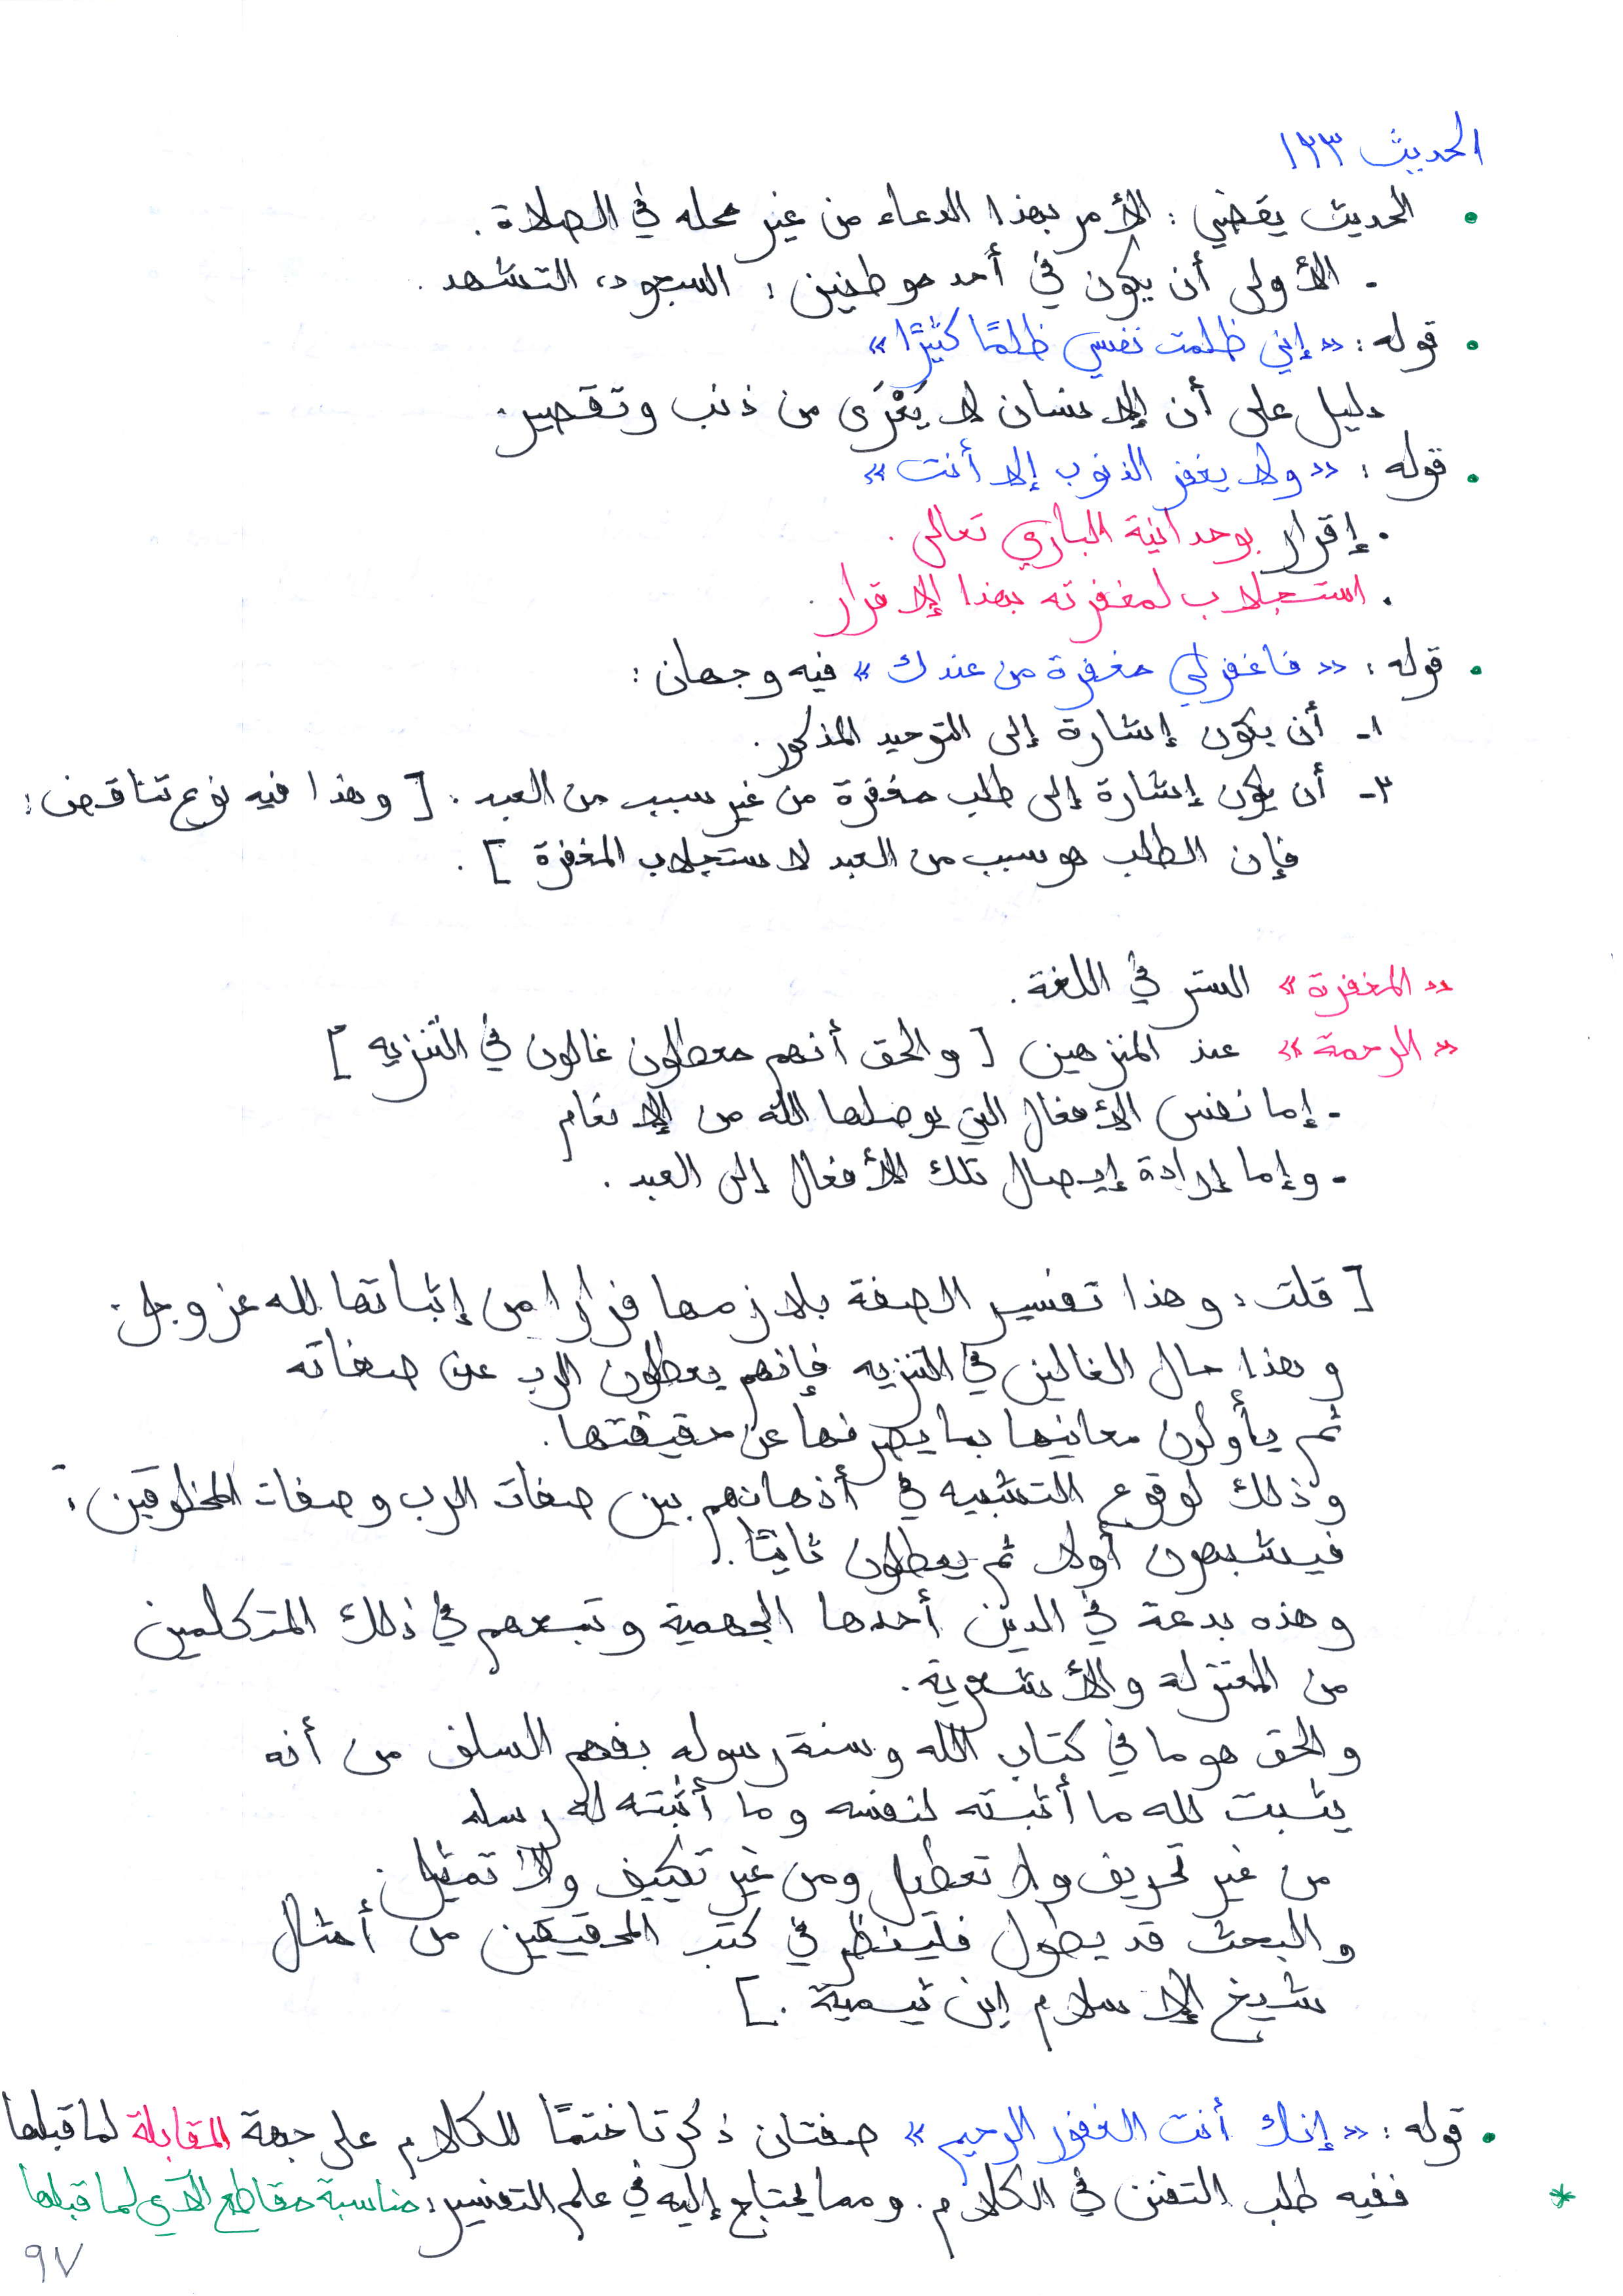 الحديث ١٢٣
• الحديث يقضي : الأمر بهذا الدعاء من غير محله في الصلاة .
- الأولى أن يكون في أحد موطنين : السجود، التشهد .
• قوله : « إني ظلمت نفسي ظلمًا كثيرًا »
دليل على أن الإنسان لا يَعْرَى من ذنب وتقصير .
• قوله : « ولا يغفر الذنوب إلا أنت »
• إقرار بوحدانية الباري تعالى .
• استجلاب لمغفرته بهذا الإقرار .
• قوله : « فاغفر لي مغفرة من عندك » فيه وجهان :
١- أن يكون إشارة إلى التوحيد المذكور .
٢- أن يكون إشارة إلى طلب مغفرة من غير سبب من العبد . [ وهذا فيه نوع تناقض :
فإن الطلب هو سبب من العبد لاستجلاب المغفرة ] .
« المغفرة » الستر في اللغة .
« الرحمة » عند المنزهين [ والحق أنهم معطلون غالون في التنزيه ]
- إما نفس الأفعال التي يوصلها الله من الإنعام
- وإما إرادة إيصال تلك الأفعال إلى العبد .
[ قلت : وهذا تفسير الصفة بلازمها فرارا من إثباتها لله عز وجل .
وهذا حال الغالين في التنزيه فإنهم يعطلون الرب عن صفاته
ثم يأولون معانيها بما يصرفها عن حقيقتها .
وذلك لوقوع التشبيه في أذهانهم بين صفات الرب وصفات المخلوقين :
فيشبهون أولا ثم يعطلون ثانيًا .
وهذه بدعة في الدين أحدها الجهمية وتبعهم في ذلك المتكلمين
من المعتزلة والأشعرية .
والحق هو ما في كتاب الله وسنة رسوله بفهم السلف من أنه
يثبت لله ما أثبته لنفسه وما أثبته له رسله
من غير تحريف ولا تعطيل ومن غير تكييف ولا تمثيل .
والبحث قد يطول فلينظر في كتب المحقيقين من أمثال
شيخ الإسلام ابن تيمية . ]
• قوله : « إنك أنت الغفور الرحيم » صفتان ذكرتا ختمًا للكلام على جهة المقابلة لما قبلها
* ففيه طلب التفنن في الكلام . ومما يحتاج إليه في علم التفسير : مناسبة مقاطع الآي لما قبلها
٩٧